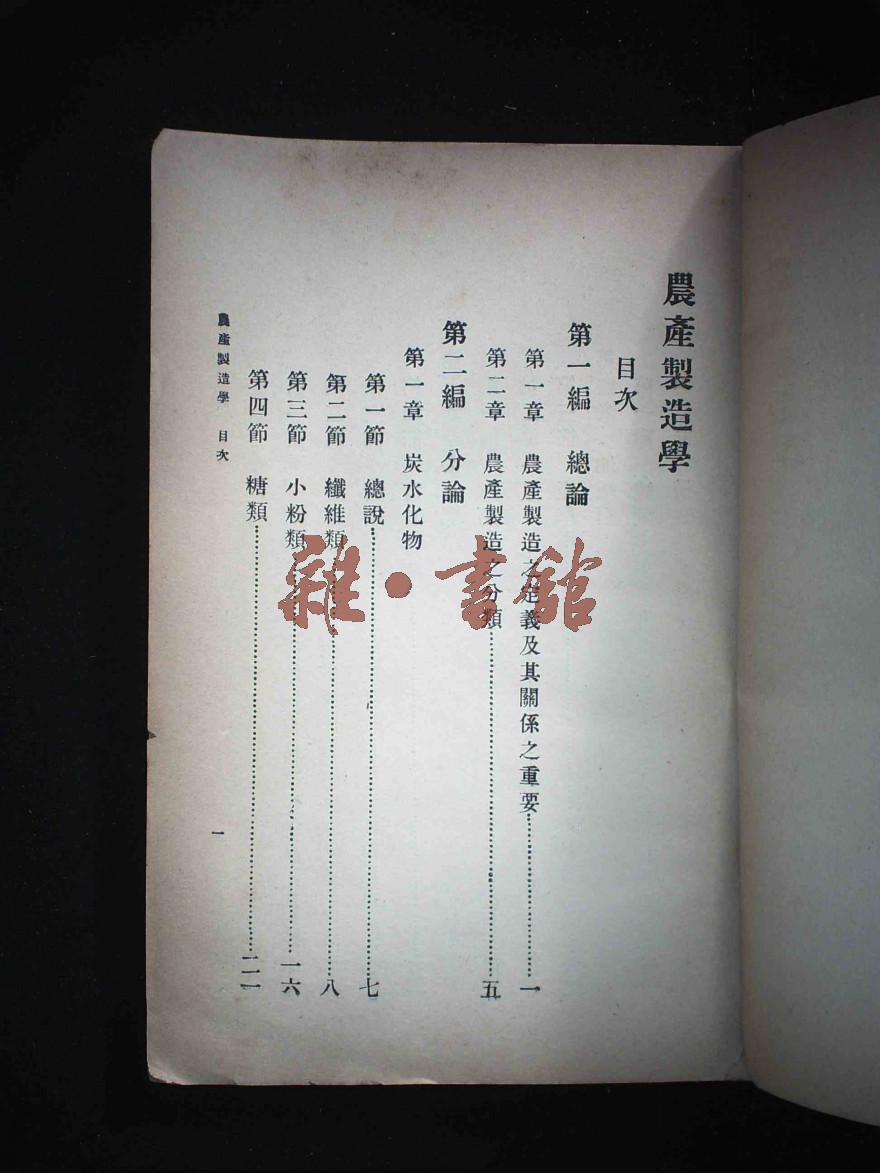 農產製造學
目次
第一編 總論
第一章 農產製造之定義及其關係之重要……一
第二章 農產製造之分類……五
第二編 分論
第一章 炭水化物
第一節 總說……七
第二節 纖維類……八
第三節 小粉類……一六
第四節 糖類……二一
農產製造學 目次
一
雜·書館